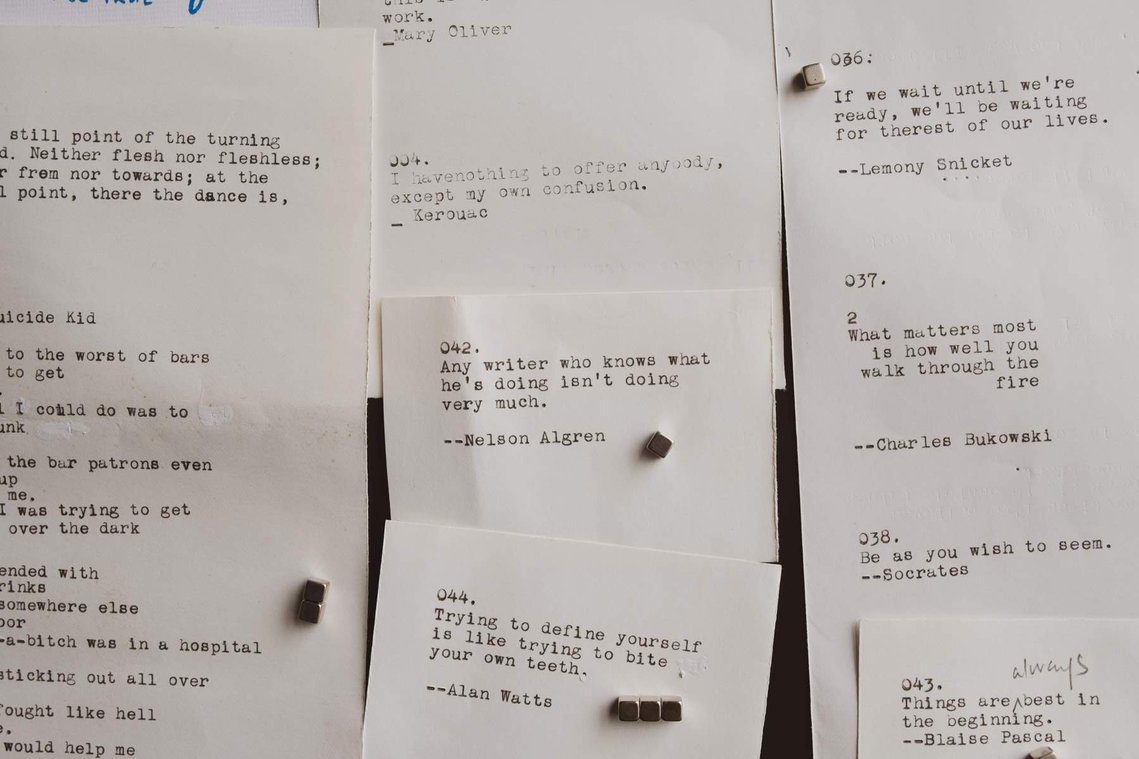 still point of the turning
d. Neither flesh nor fleshless;
r from nor towards; at the
l point, there the dance is,
uicide Kid
to the worst of bars
to get
I could do was to
unk
the bar patrons even
up
me.
I was trying to get
over the dark
ended with
rinks
somewhere else
oor
-a-bitch was in a hospital
sticking out all over
fought like hell
e.
would help me
work.
_Mary Oliver
004.
I havenothing to offer anybody,
except my own confusion.
_ Kerouac
042.
Any writer who knows what
he's doing isn't doing
very much.
--Nelson Algren
044.
Trying to define yourself
is like trying to bite
your own teeth.
--Alan Watts
036:
If we wait until we're
ready, we'll be waiting
for therest of our lives.
--Lemony Snicket
037.
2
What matters most
is how well you
walk through the
fire
--Charles Bukowski
038.
Be as you wish to seem.
--Socrates
always
043.
Things are best in
the beginning.
--Blaise Pascal